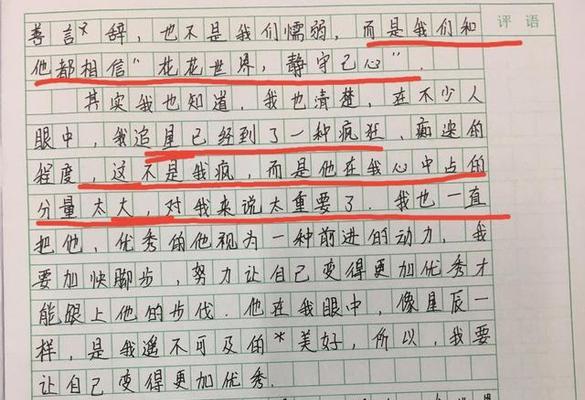 评语
善言×辞，也不是我们懦弱，而是我们和
他都相信"花花世界，静守己心"．
其实我也知道，我也清楚，在不少人
眼中，我追星已经到了一种疯狂，痴迷的
程度，这不是我疯，而是他在我心中占的
分量太大，对我来说太重要了．我也一直
把他，优秀的他视为一种前进的动力，我
要加快脚步，努力让自己变得更加优秀才
能跟上他的步伐．他在我眼中，像星辰一
样，是我遥不可及的*美好，所以，我要
让自己变得更加优秀．